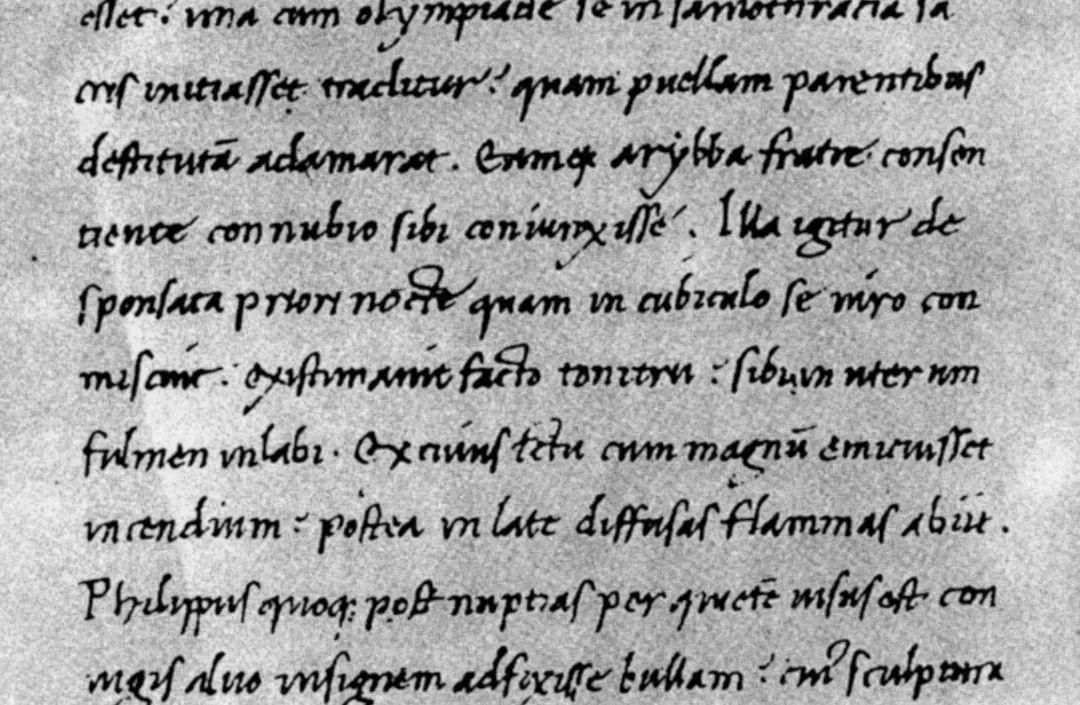 esset: una cum olympiade se in samothracia sa
cris initiasset traditur: quam puellam parentibus
destitutā adamarat. Eamq; arybba fratre consen
tiente connubio sibi coniunxisse. Illa igitur de
sponsata priori nocte quam in cubiculo se viro con
miscuit: existimavit facto tonitru: sibi in uterum
fulmen inlabi. Ex cuius ictu cum magnū emicuisset
incendium: postea in late diffusas flammas abiit.
Philippus quoq; post nuptias per quietē visus est con
iugis aluo insignem adfixisse bullam: cui sculptura